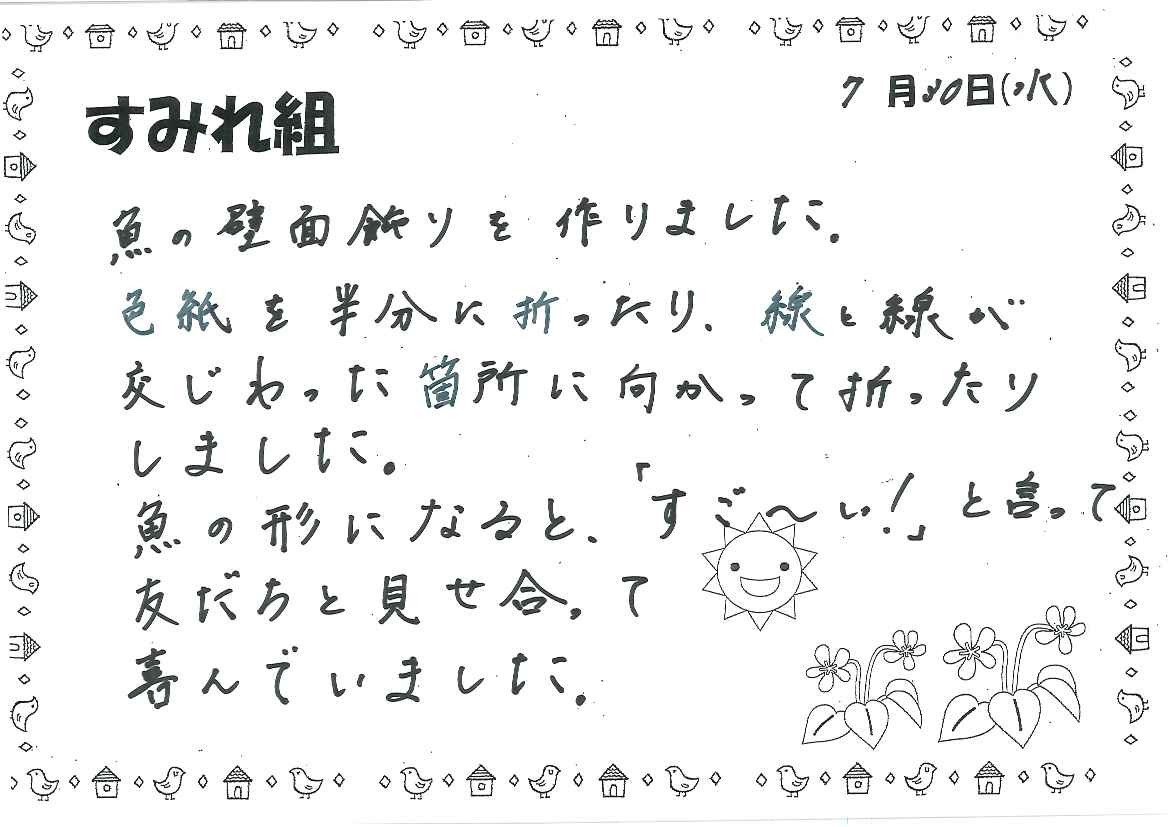 7月30日(火)
すみれ組
魚の壁面飾りを作りました。
色紙を半分に折ったり、線と線が
交じわった箇所に向かって折ったり
しました。
魚の形になると、「すご～い!」と言って
友だちと見せ合って
喜んでいました。